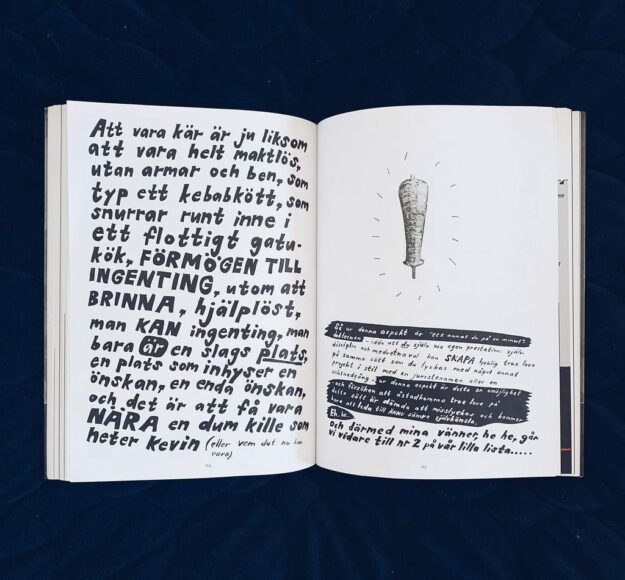 Att vara kär är ju liksom
att vara helt maktlös,
utan armar och ben, som
typ ett kebabkött, som
snurrar runt inne i
ett flottigt gatu-
kök, FÖRMÖGEN TILL
INGENTING, utom att
BRINNA, hjälplöst,
man KAN ingenting, man
bara är en slags plats,
en plats som inhyser en
önskan, en enda önskan,
och det är att få vara
NÄRA en dum kille som
heter Kevin (eller vem det nu kan
vara)
denna aspekt är
- idén att du själv via egen prestation, själv-
disciplin och medvetenval kan SKAPA true love
på samma sätt som du lyckas med något annat
projekt i stil med en juristexamen eller en
viktnedgång - ur denna aspekt är detta en omöjlighet
och försöken att åstadkomma true love på
detta sätt är dömda att misslyckas och kommer
bara att leda till sämre självkänsla.
Eh, ke.
Och därmed mina vänner, he he, går
vi vidare till nr 2 på vår lilla lista.....